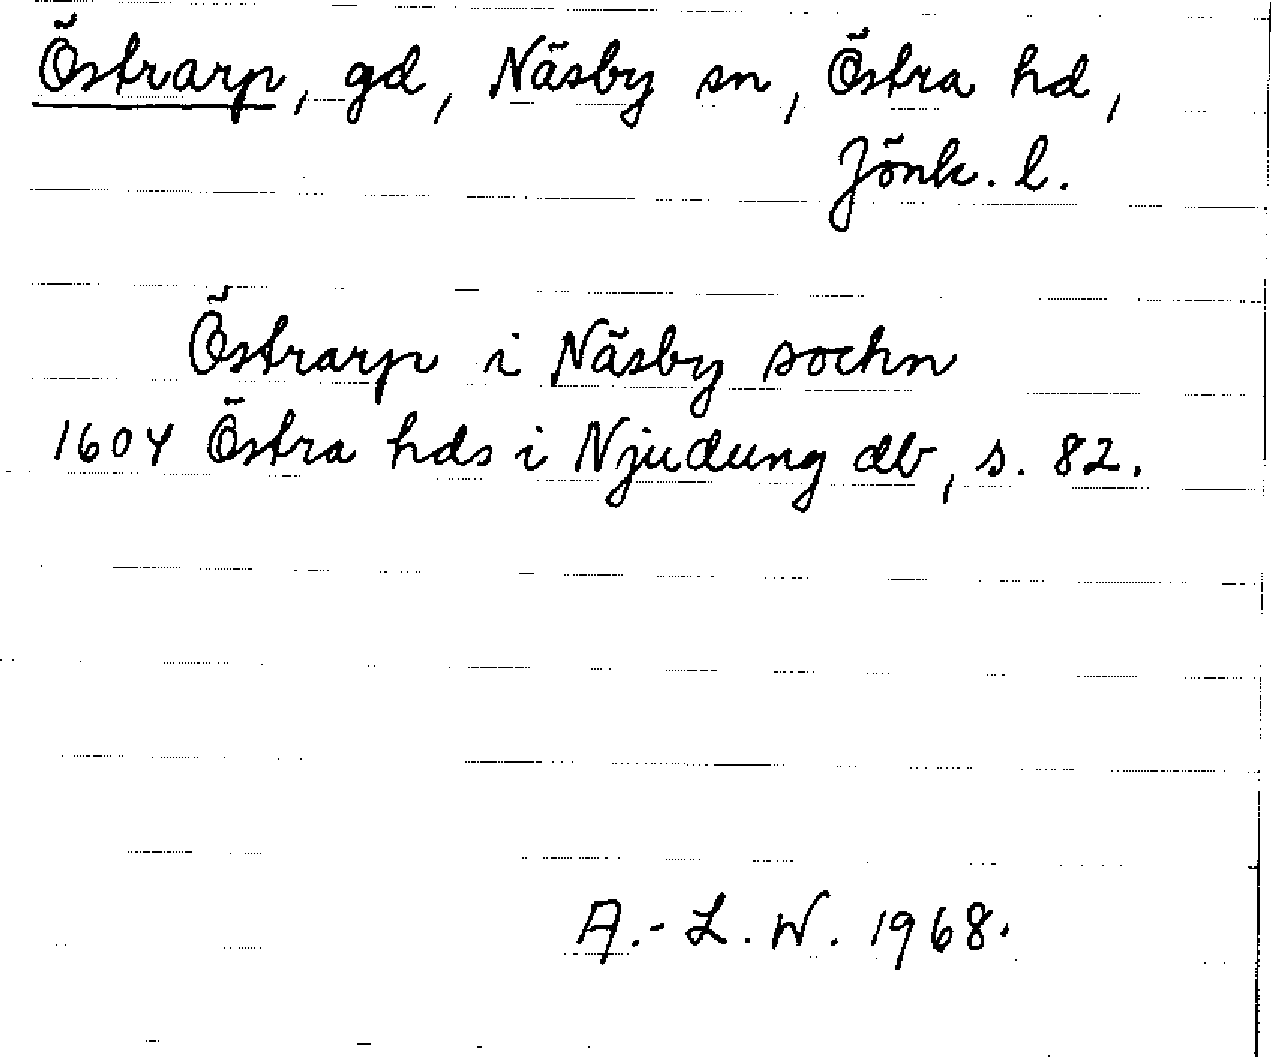 Östrarp, gd, Näsby sn, Östra hd,
Jönk. l.
Östrarp i Näsby sochn
1604 Östra hds i Njudung db, s. 82.
A.-L. W. 1968.